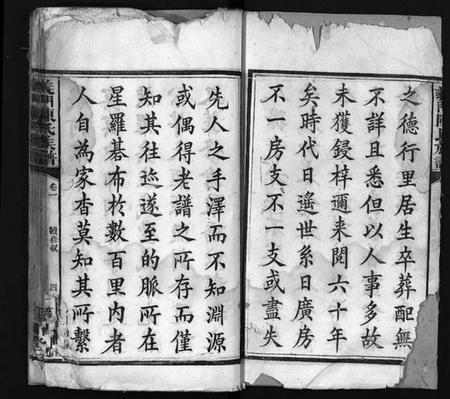 之德行里居生卒葬配無
不詳且悉但以人事多故
未獲鋟梓邇來閱六十年
矣時代日遙世系日廣房
不一房支不一支或盡失
先人之手澤而不知淵源
或偶得老譜之所存而僅
知其往迹遂至的脈所在
星羅碁布於數百里內者
人自為家杳莫知其所繫
義門陳氏族譜
卷一
四